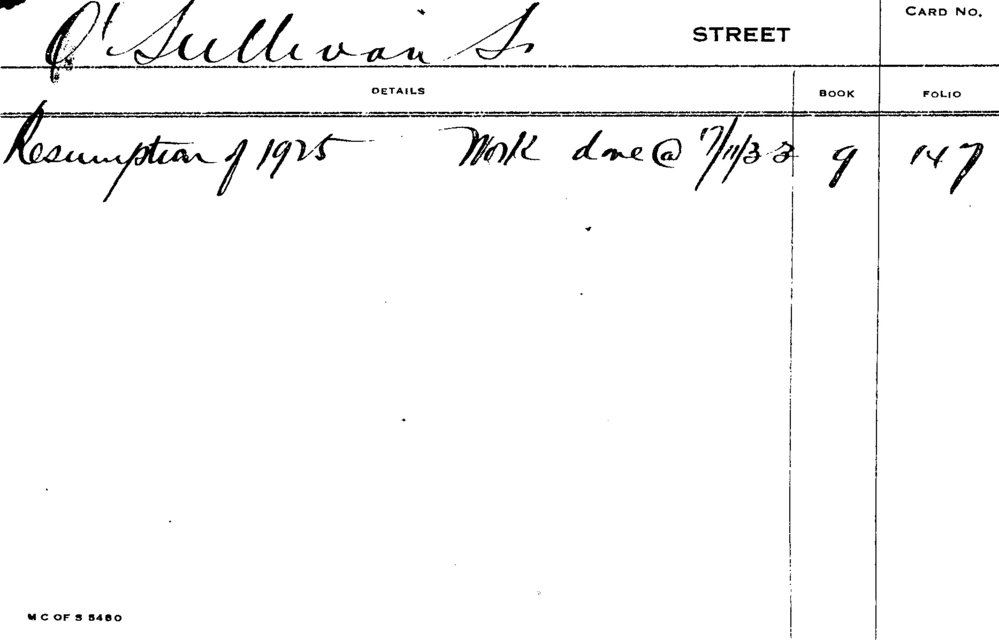 O'Sullivan S. STREET CARD NO.
DETAILS BOOK FOLIO
Resumption of 1925 Work done @ 17/11/33 9 147
M C OF S 5480